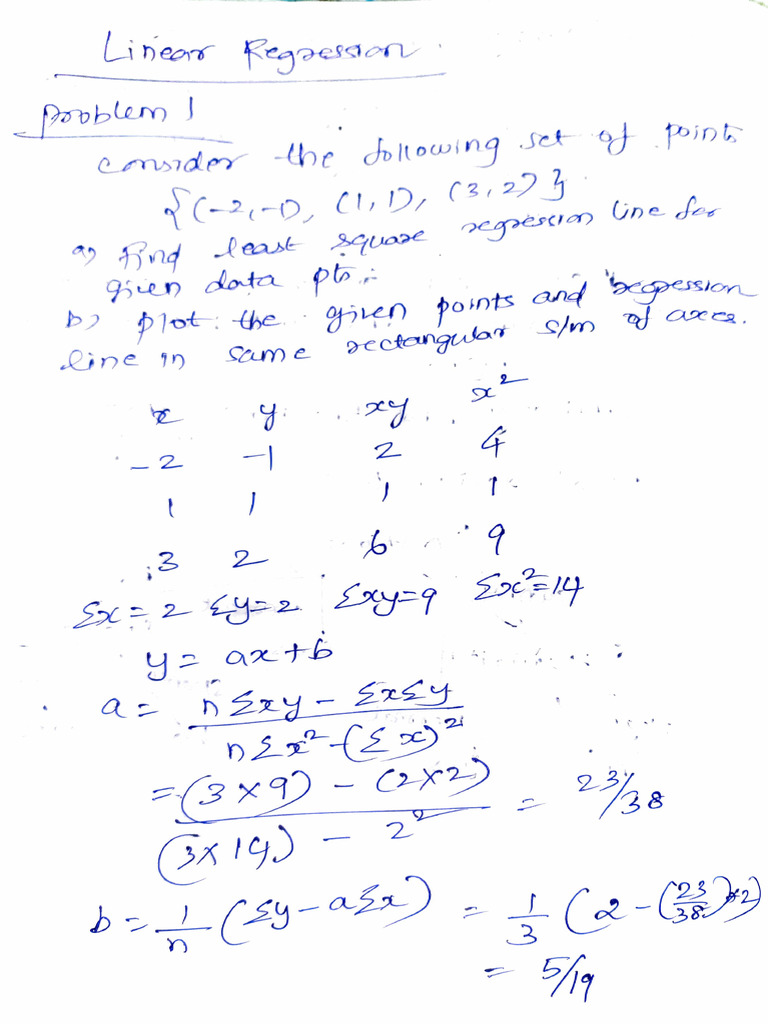 Linear Regression
Problem 1
consider the following set of points
{(-2,-1), (1,1), (3,2)}
a) Find least square regression line for
given data pts.
b) plot the given points and regression
line in same rectangular s/m of axes.
x y xy x²
-2 -1 2 4
1 1 1 1
3 2 6 9
Σx = 2 Σy=2 Σxy=9 Σx²=14
y = ax+b
a = (nΣxy - ΣxΣy) / (nΣx² - (Σx)²)
= ((3×9) - (2×2)) / ((3×14) - 2²) = 23/38
b = 1/n (Σy - aΣx) = 1/3 (2 - (23/38)×2)
= 5/19